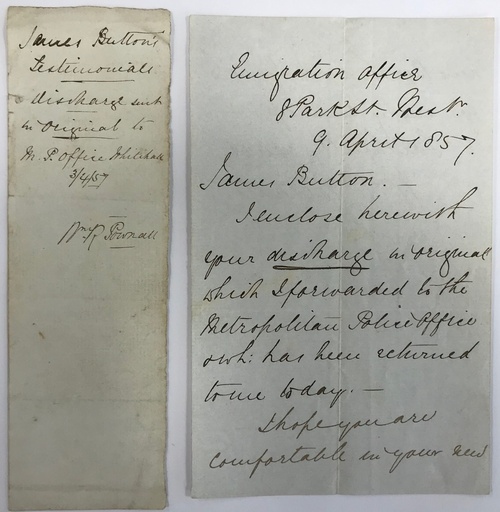 James Button's
Testimonials
discharge sent
in original to
M. P. Office Whitehall
3/4/57
Pownall
Emigration Office
8 Park St. West.
9. April 1857.
James Button. —
I enclose herewith
your discharge in original
which I forwarded to the
Metropolitan Police Office
& wh: has been returned
to me today. —
I hope you are
comfortable in your new